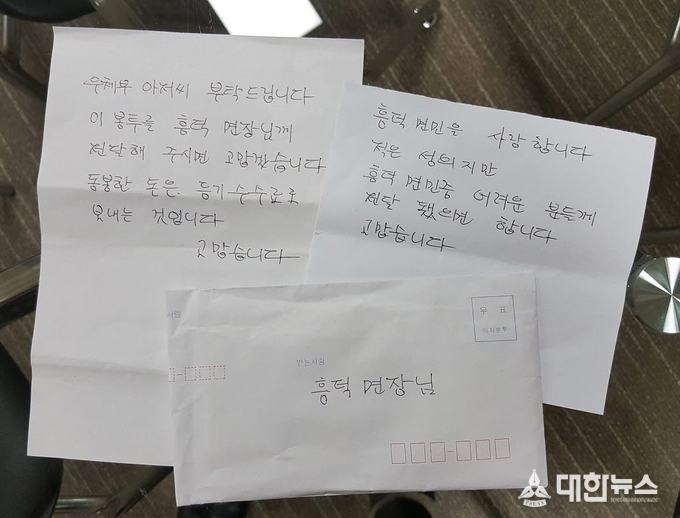 우체부 아저씨 부탁드립니다
이 봉투를 흥덕 면장님께
전달해 주시면 고맙겠습니다
동봉한 돈은 등기수수료로
보내는 것입니다
고맙습니다
흥덕 면민을 사랑합니다
적은 성의지만
흥덕 면민중 어려운 분들께
전달 됐으면 합니다
고맙습니다
우 표
받는사람
흥덕 면장님
대한뉴스